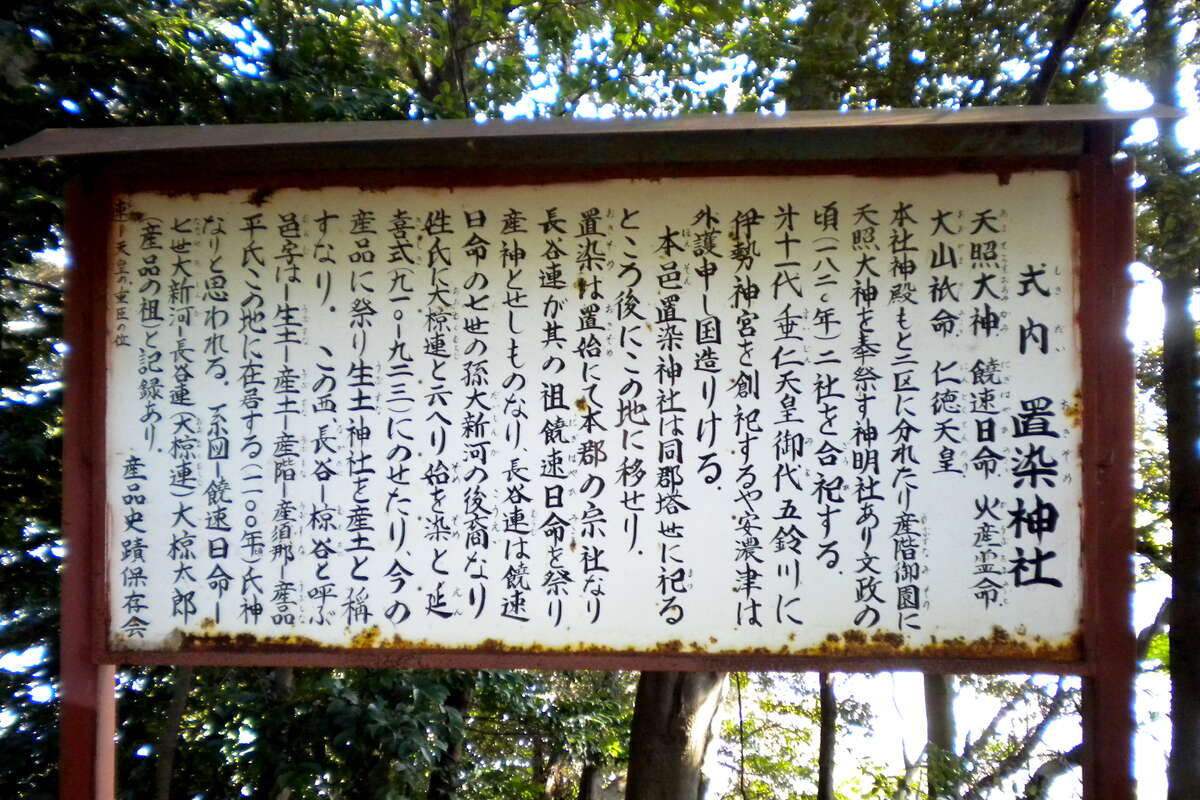 式内 置染神社
天照大神 饒速日命 火産霊命
大山祇命 仁徳天皇
本社神殿もと二区に分れたり産階御園に
天照大神を奉祭す神明社あり文政の
頃(一八二〇年)二社を合祀する。
廾十一代垂仁天皇御代五鈴川に
伊勢神宮を創祀するや安濃津は
外護申し国造りける。
本邑置染神社は同郡塔世に祀る
ところ後にこの地に移せり。
置染は置始にて本郡の宗社なり
長谷連が其の祖饒速日命を祭り
産神とせしものなり、長谷連は饒速
日命の七世の孫大新河の後裔なり
姓氏に大椋連と六へり始を染と延
喜式(九一〇ー九二三)にのせたり、今の
産品に祭り生土神社を産土と稱
すなり。この西長谷ー椋谷と呼ぶ
邑字はー生土ー産土ー産階ー産須那ー産品
平氏この地に在居する(一一〇〇年)氏神
なりと思われる。系図ー饒速日命ー
七世大新河ー長谷連(大椋連)大椋太郎
(産品の祖)と記録あり。
産品史蹟保存会
連ー天皇の重臣の位